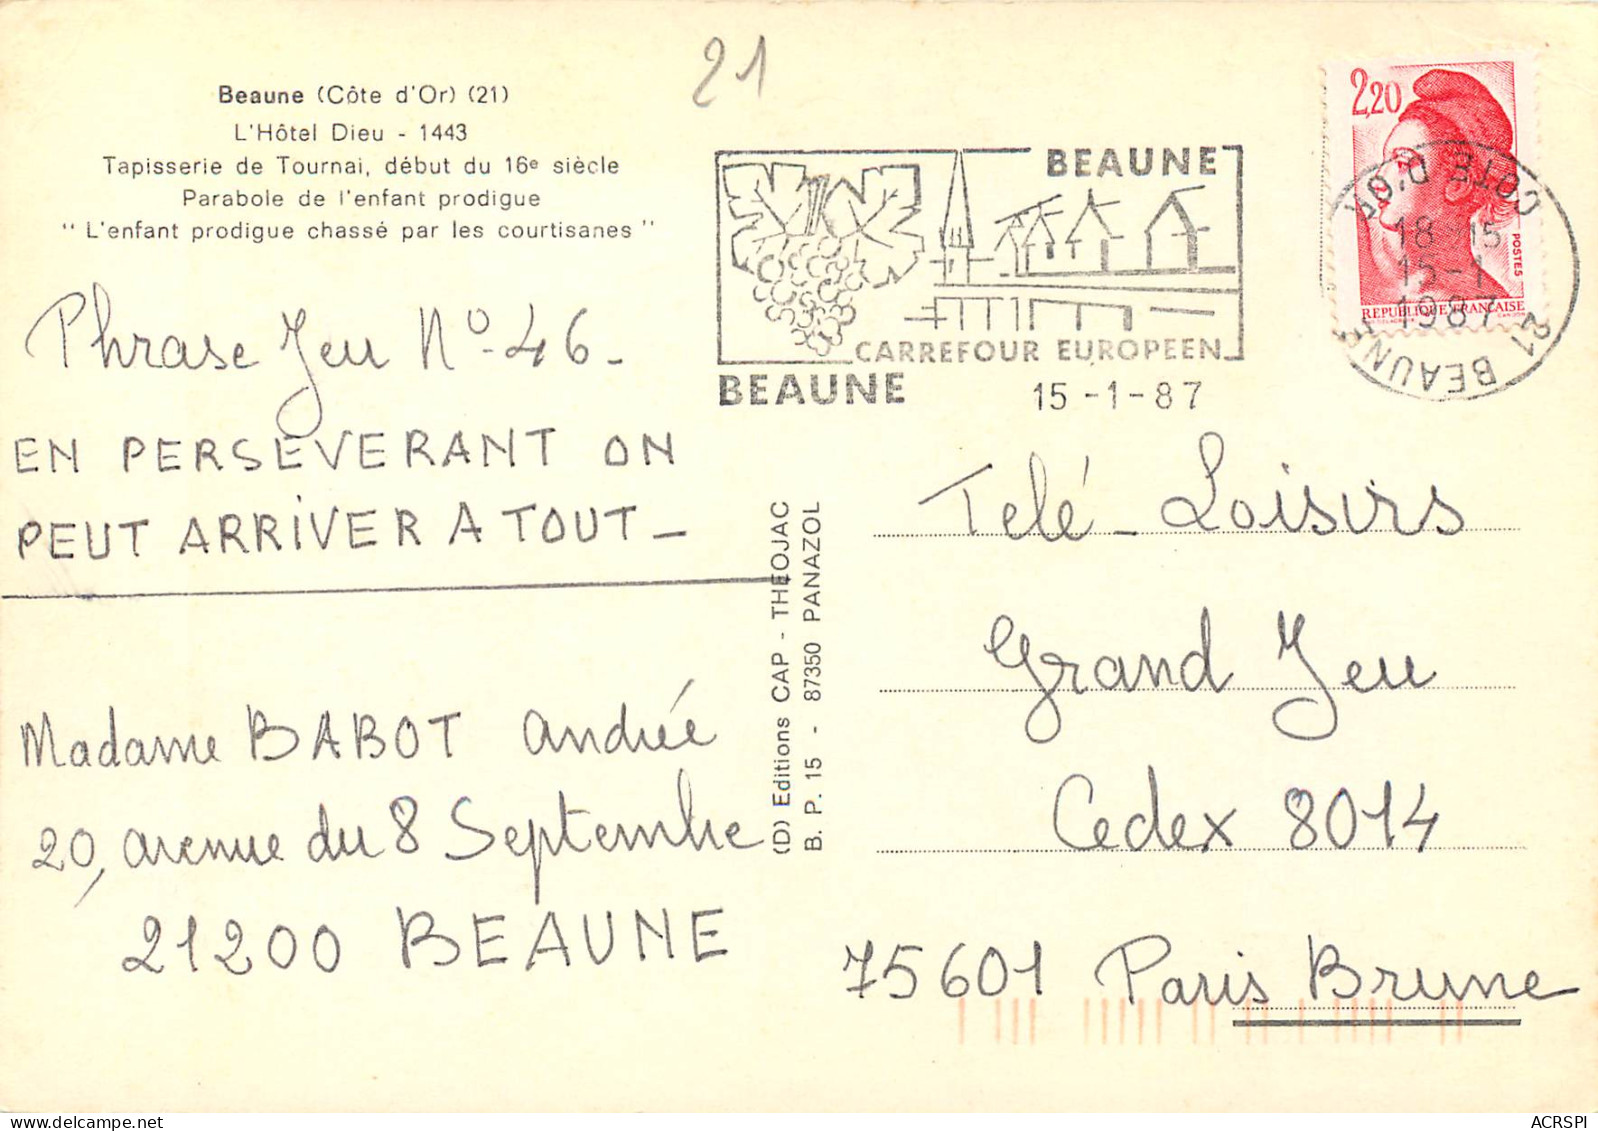 21
Beaune (Côte d'Or) (21)
L'Hôtel Dieu - 1443
Tapisserie de Tournai, début du 16e siècle
Parabole de l'enfant prodigue
" L'enfant prodigue chassé par les courtisanes "
Phrase Jeu N° 46_
EN PERSEVERANT ON
PEUT ARRIVER A TOUT_
Madame BABOT Andrée
20, avenue du 8 Septembre
21200 BEAUNE
(D) Editions CAP - THEOJAC
B. P. 15 - 87350 PANAZOL
BEAUNE
CARREFOUR EUROPEEN
BEAUNE
15 -1-87
2,20
POSTES
REPUBLIQUE FRANÇAISE
COTE D'OR
18 H15
15-1
1987
21 BEAUNE
Telé-Loisirs
Grand Jeu
Cedex 8014
75601 Paris Brune
ACRSPI